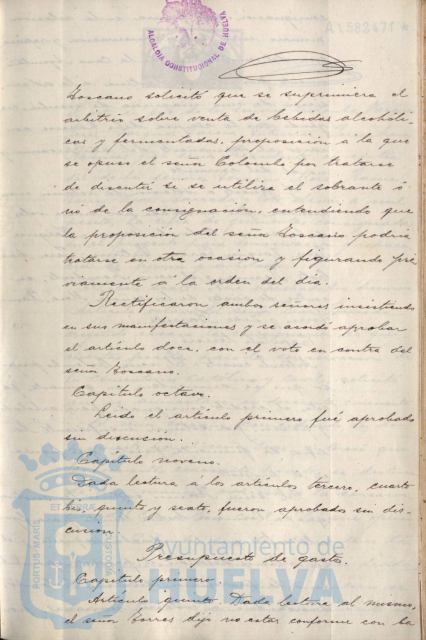 ALCALDIA CONSTITUCIONAL DE HUELVA
A1582471 *
Toscano solicitó que se suprimiera el
arbitrio sobre venta de bebidas alcohóli-
cas y fermentadas, proposición á la que
se opuso el señor Colombo por tratarse
de discutir si se utiliza el sobrante ó
no de la consignación, entendiendo que
la proposición del señor Toscano podría
tratarse en otra ocasion y figurando pre-
viamente á la orden del día.
Rectificaron ambos señores insistiendo
en sus manifestaciones y se acordó aprobar
el artículo doce, con el voto en contra del
señor Toscano.
Capítulo octavo.
Leido el artículo primero fué aprobado
sin discusión.
Capítulo noveno.
Dada lectura á los artículos tercero, cuarto
bis, quinto y sexto, fueron aprobados sin dis-
cusión.
Presupuesto de gastos.
Capítulo primero.
Artículo quinto. Dada lectura al mismo,
el señor Torres dijo no estar conforme con la
Ayuntamiento de
HUELVA
PORTUS MARIS